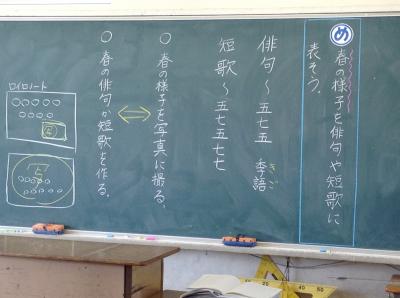 め
春の様子を俳句や短歌に
表そう。
俳句〜五七五 季語
きご
短歌〜五七五七七
○ 春の様子を写真に撮る。
○ 春の俳句か短歌を作る。
ロイロノート